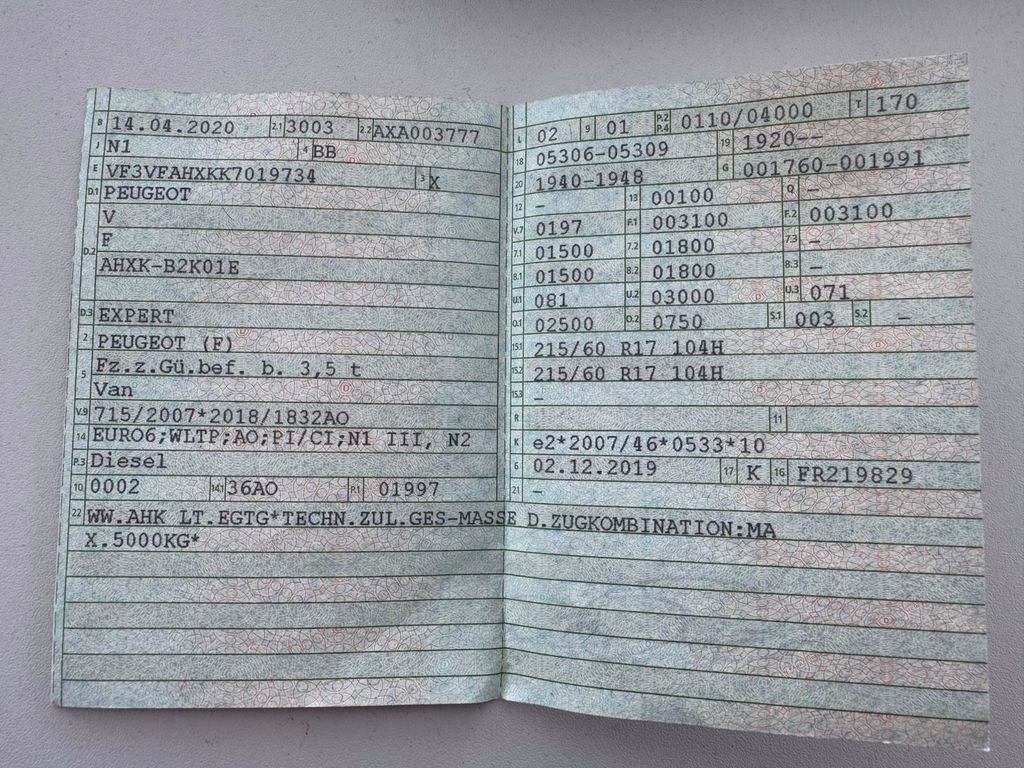 B 14.04.2020 2.1 3003 2.2 AXA003777
J N1 4 BB
E VF3VFAHXKK7019734 3 X
D.1 PEUGEOT
V
D.2 F
AHXK-B2K01E
D.3 EXPERT
2 PEUGEOT (F)
5 Fz.z.Gü.bef. b. 3,5 t
Van
V.9 715/2007*2018/1832AO
14 EURO6;WLTP;AO;PI/CI;N1 III, N2
P.3 Diesel
10 0002 14.1 36AO P.1 01997
22 WW.AHK LT.EGTG*TECHN.ZUL.GES-MASSE D.ZUGKOMBINATION:MA
X.5000KG*
L 02 9 01 P.2 P.4 0110/04000 T 170
18 05306-05309 19 1920--
20 1940-1948 G 001760-001991
12 – 13 00100 Q –
V.7 0197 F.1 003100 F.2 003100
7.1 01500 7.2 01800 7.3 –
8.1 01500 8.2 01800 8.3 –
U.1 081 U.2 03000 U.3 071
O.1 02500 O.2 0750 S.1 003 S.2 –
15.1 215/60 R17 104H
15.2 215/60 R17 104H
15.3 –
R 11
K e2*2007/46*0533*10
6 02.12.2019 17 K 16 FR219829
21 –